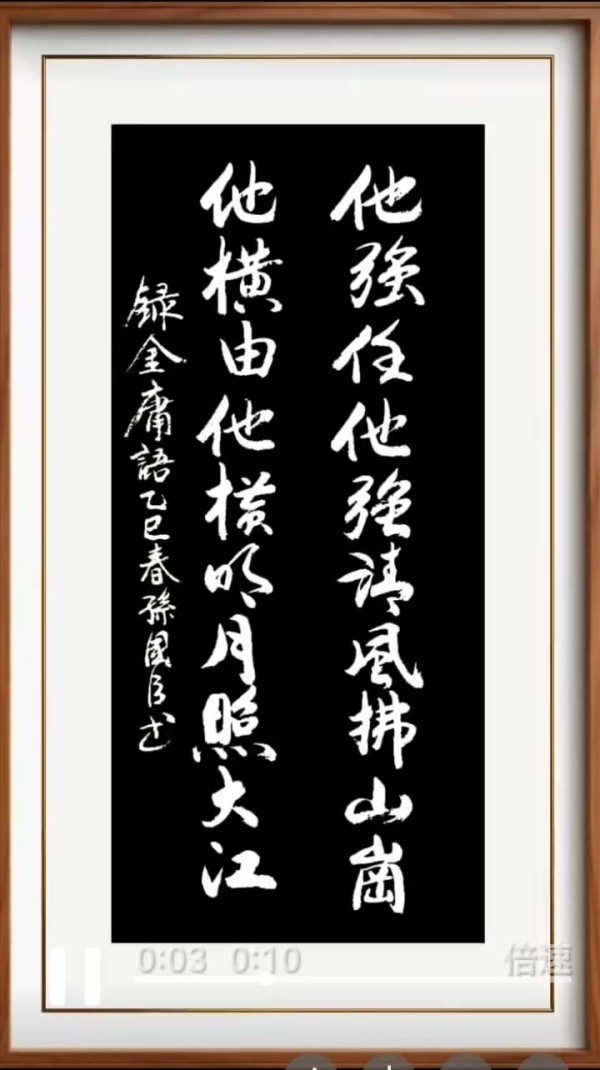 他強任他強清風拂山崗
他横由他横明月照大江
録金庸語乙巳春孫國书
0:03 0:10 倍速